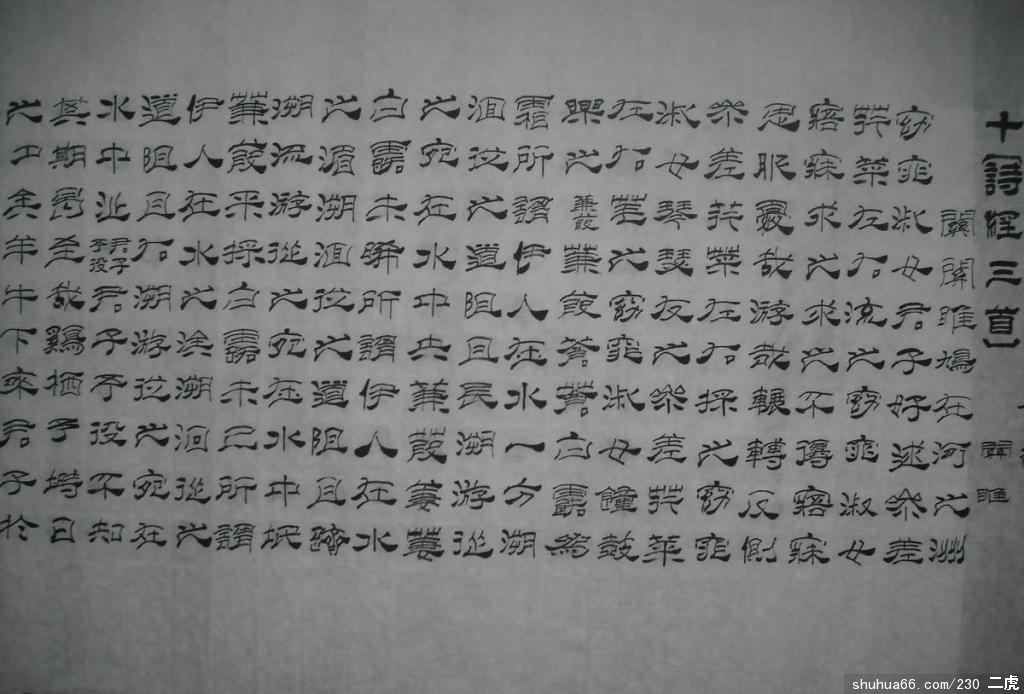 十詩經三首〕
關雎
關關雎鳩在河之洲
窈窕淑女君子好逑參差
荇菜左右流之窈窕淑女
寤寐求之求之不得寤寐
思服憂哉游哉輾轉反側
參差荇菜左右採之窈窕
淑女琴瑟友之參差荇菜
左右芼之窈窕淑女鐘鼓
樂之蒹葭蒹葭蒼蒼白露為
霜所謂伊人在水一方溯
洄從之道阻且長溯游從
之宛在水中央蒹葭萋萋
白露未晞所謂伊人在水
之湄溯洄從之道阻且躋
溯流游從之宛在水中坻
蒹葭采採白露未已所謂
伊人在水之涘溯洄從之
道阻且右溯游從之宛在
水中沚君子于役君子于役不知
其期曷至哉鷄棲于塒日
之夕矣羊牛下來君子於
shuhua66.com/230 二虎